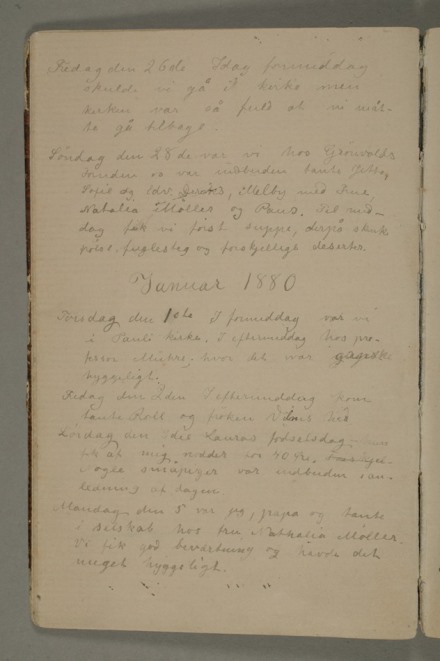 Fredag den 26de Idag formiddag
skulde vi gå i kirke men
kirken var så fuld at vi måt-
te gå tilbage.
Søndag den 28de var vi hos Grønvolds
var indbuden tante
og Melby med Fine,
Natalia Møller og Paus. Til mid-
dag fik vi først suppe,
fuglesteg og forskjellige deserter
Januar 1880
Torsdag den 1ste I formiddag var vi
i Pauli kirke. I eftermiddag hos pro-
fessor hvor det var
hyggeligt.
Fredag den 2den I eftermiddag kom
tante Roll og frøken hid
Lørdag den 3die Lauras fødselsdag
fik af mig nødder for 40 øre.
Nogle småpiger var indbuden i an-
ledning af dagen.
Mandag den 5 var jeg, papa og tante
i selskab hos fru Nathalia Møller.
Vi fik god bevertning og havde det
meget hyggeligt.